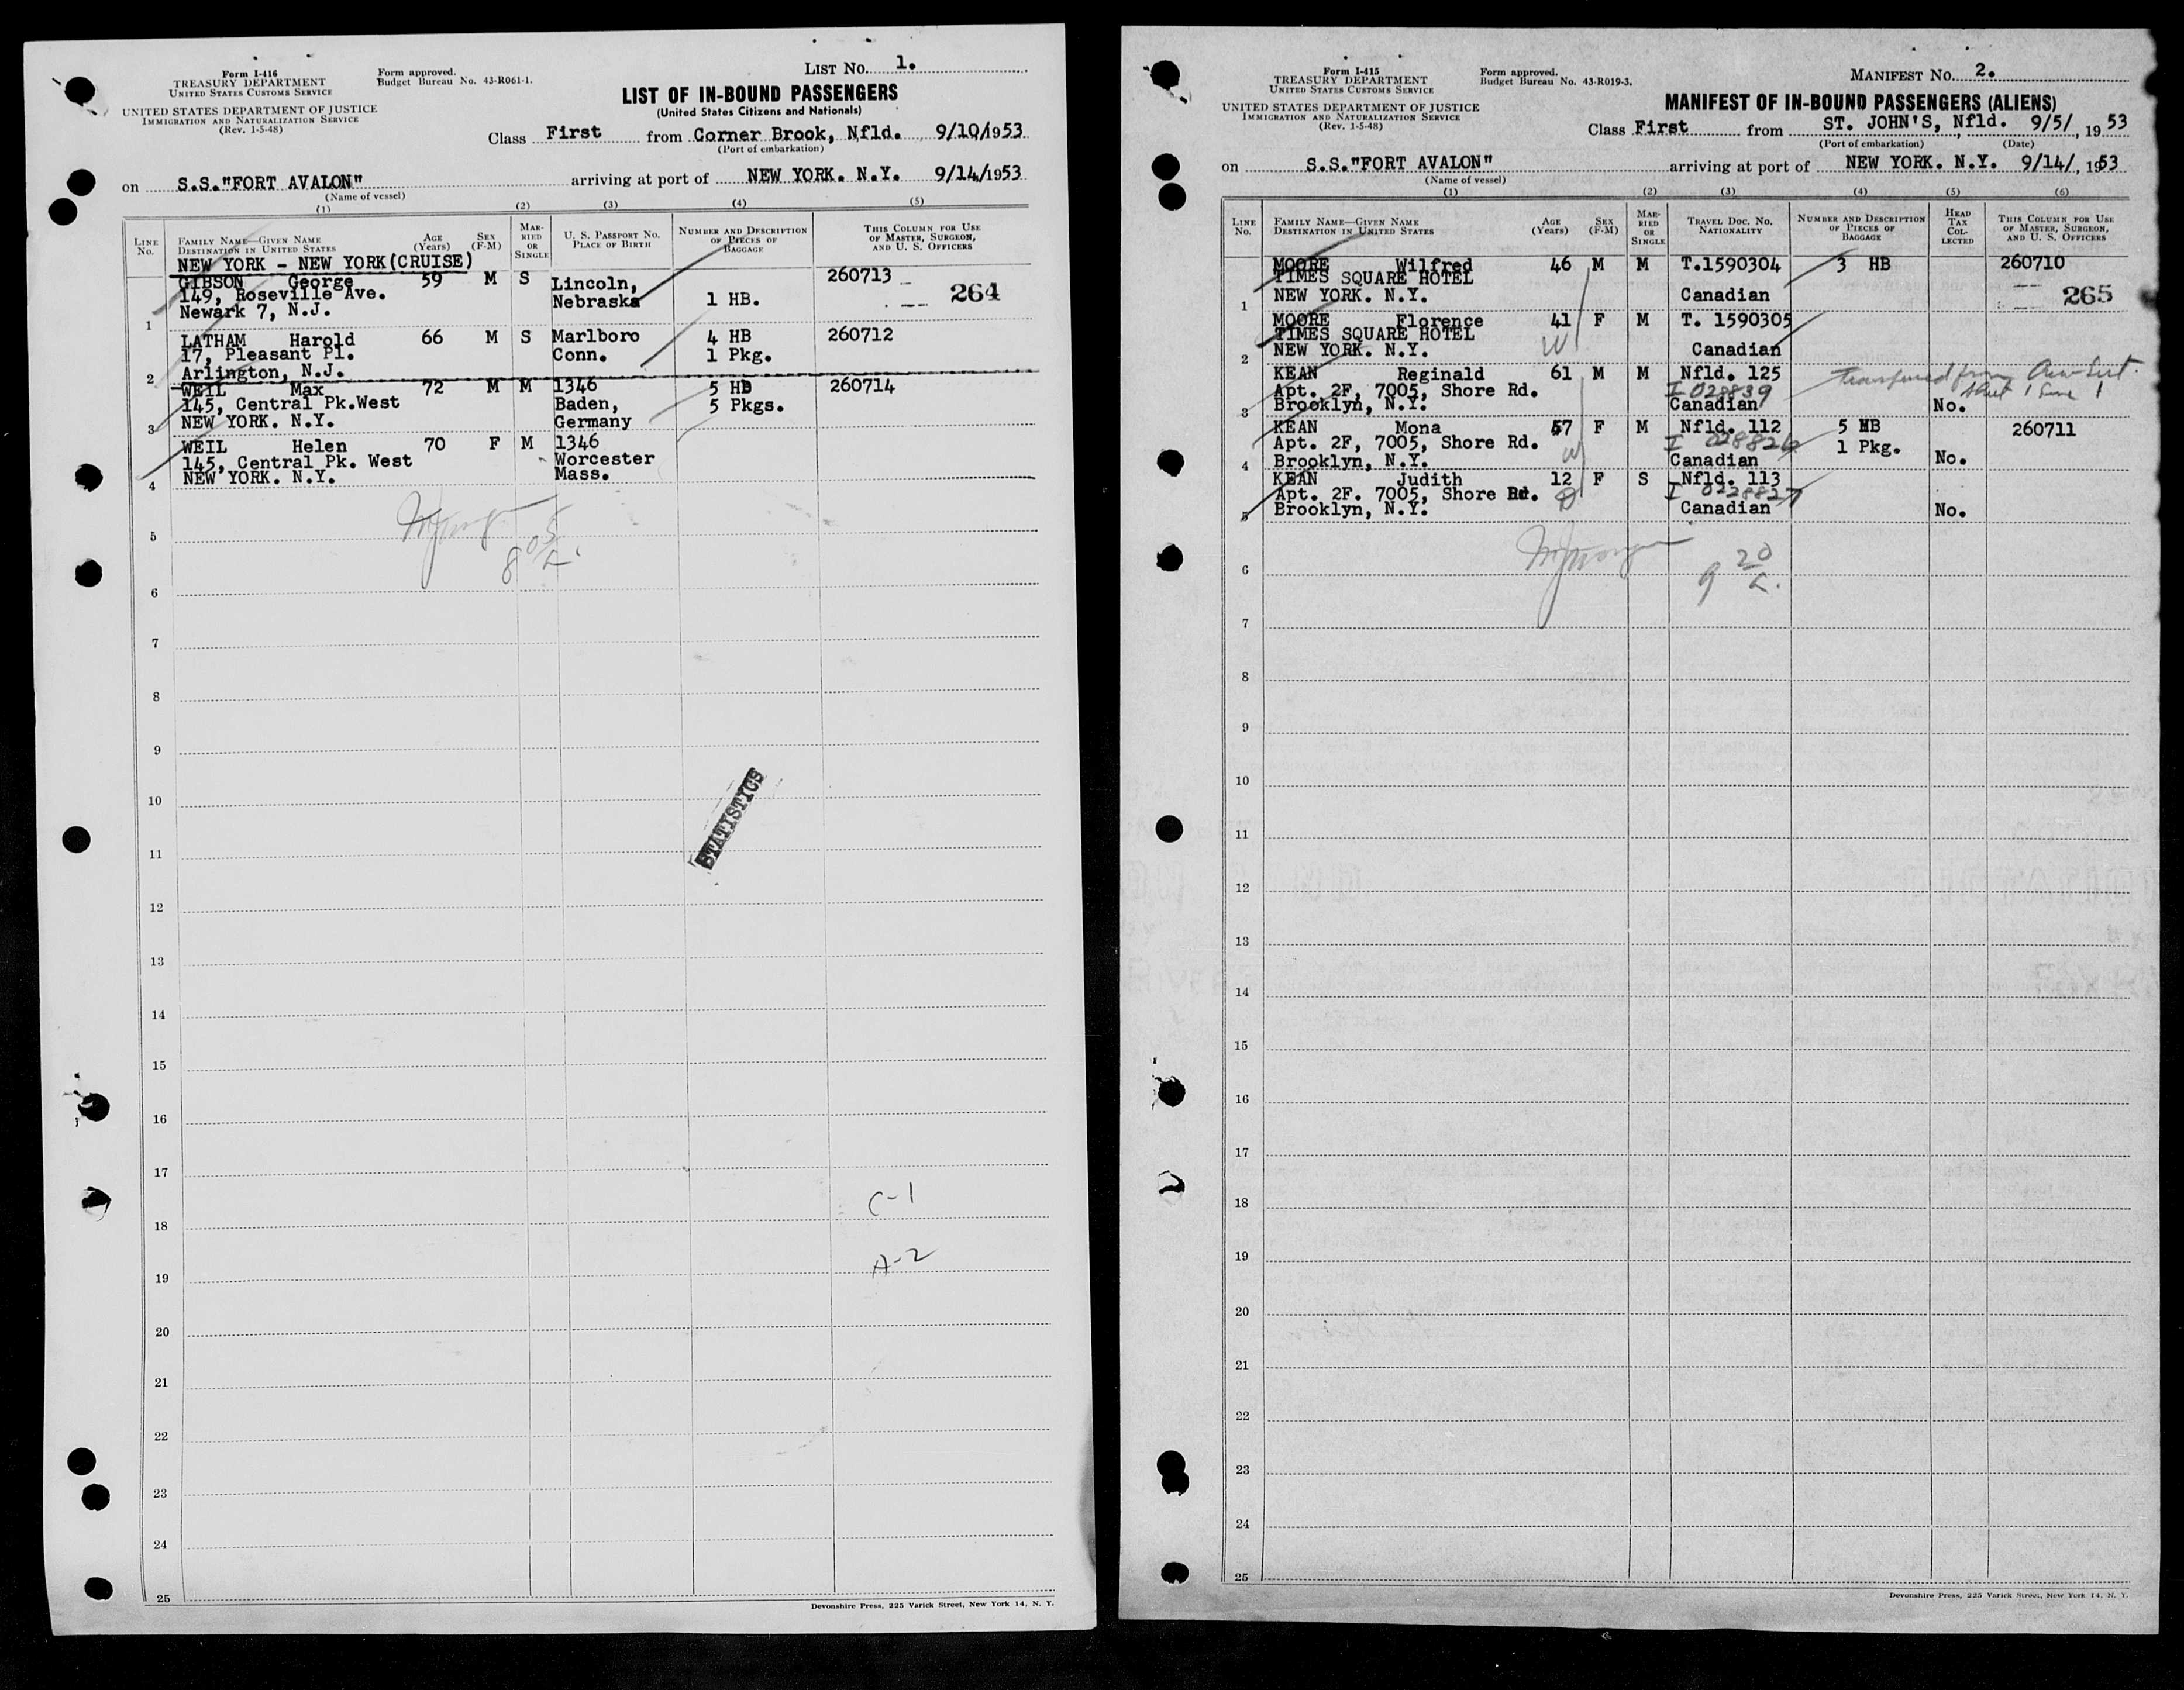 Form I-416
TREASURY DEPARTMENT
UNITED STATES CUSTOMS SERVICE
UNITED STATES DEPARTMENT OF JUSTICE
IMMIGRATION AND NATURALIZATION SERVICE
(Rev. 1-5-48)
Form approved.
Budget Bureau No. 43-R061-1.
LIST No. 1.
LIST OF IN-BOUND PASSENGERS
(United States Citizens and Nationals)
Class First from Corner Brook, Nfld. 9/10/1953
(Port of embarkation)
on S.S."FORT AVALON" arriving at port of NEW YORK. N.Y. 9/14/1953
(Name of vessel)
(1) (2) (3) (4) (5)
LINE No. FAMILY NAME—GIVEN NAME DESTINATION IN UNITED STATES AGE (Years) SEX (F-M) MARRIED OR SINGLE U. S. PASSPORT NO. PLACE OF BIRTH NUMBER AND DESCRIPTION OF PIECES OF BAGGAGE THIS COLUMN FOR USE OF MASTER, SURGEON, AND U. S. OFFICERS
NEW YORK - NEW YORK(CRUISE)
GIBSON George 59 M S Lincoln, 260713
149, Roseville Ave. Nebraska 1 HB. 264
Newark 7, N.J.
1
LATHAM Harold 66 M S Marlboro 4 HB 260712
17, Pleasant Pl. Conn. 1 Pkg.
Arlington, N.J.
2
WEIL Max 72 M M 1346 5 HB 260714
145, Central Pk.West Baden, 5 Pkgs.
3 NEW YORK. N.Y. Germany
WEIL Helen 70 F M 1346
145, Central Pk. West Worcester
4 NEW YORK. N.Y. Mass.
5
8 05
6
7
8
9
10
STATISTICS
11
12
13
14
15
16
17
C-1
18
A-2
19
20
21
22
23
24
25
Devonshire Press, 225 Varick Street, New York 14, N. Y.
Form I-415
TREASURY DEPARTMENT
UNITED STATES CUSTOMS SERVICE
UNITED STATES DEPARTMENT OF JUSTICE
IMMIGRATION AND NATURALIZATION SERVICE
(Rev. 1-5-48)
Form approved.
Budget Bureau No. 43-R019-3.
MANIFEST No. 2.
MANIFEST OF IN-BOUND PASSENGERS (ALIENS)
Class First from ST. JOHN'S, Nfld. 9/5/, 1953
(Port of embarkation) (Date)
on S.S."FORT AVALON" arriving at port of NEW YORK. N.Y. 9/14/, 1953
(Name of vessel)
(1) (2) (3) (4) (5) (6)
LINE No. FAMILY NAME—GIVEN NAME DESTINATION IN UNITED STATES AGE (Years) SEX (F-M) MARRIED OR SINGLE TRAVEL DOC. NO. NATIONALITY NUMBER AND DESCRIPTION OF PIECES OF BAGGAGE HEAD TAX COLLECTED THIS COLUMN FOR USE OF MASTER, SURGEON, AND U. S. OFFICERS
MOORE Wilfred 46 M M T.1590304 3 HB 260710
TIMES SQUARE HOTEL
1 NEW YORK. N.Y. Canadian 265
MOORE Florence 41 F M T. 1590305
TIMES SQUARE HOTEL
2 NEW YORK. N.Y. W Canadian
KEAN Reginald 61 M M Nfld. 125 Transferred from
Apt. 2F, 7005, Shore Rd. I 028839
3 Brooklyn, N.Y. Canadian No.
KEAN Mona 57 F M Nfld. 112 5 HB 260711
Apt. 2F, 7005, Shore Rd. I 028826 1 Pkg.
4 Brooklyn, N.Y. W Canadian No.
KEAN Judith 12 F S Nfld. 113
Apt. 2F. 7005, Shore Rd. D I 0228827
5 Brooklyn, N.Y. Canadian No.
6
9 20
7
8
9
10
11
12
13
14
15
16
17
18
19
20
21
22
23
24
25
Devonshire Press, 225 Varick Street, New York 14, N. Y.